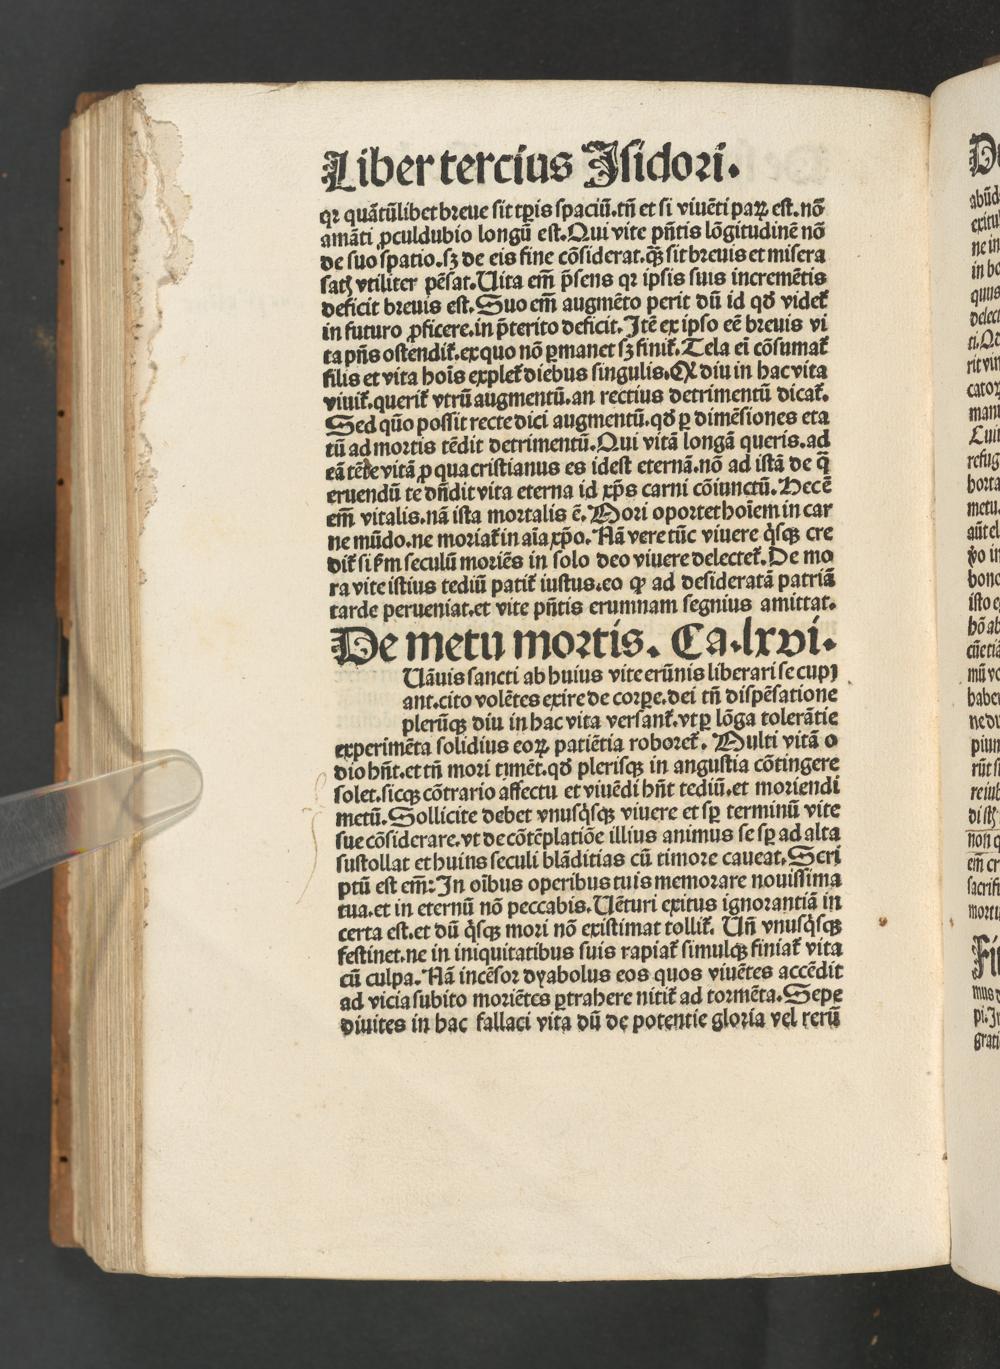 Liber tercius Isidori.
qꝛ quãtũlibet breue sit tp̃is spaciũ.tñ et si viuẽti paꝝ est.nõ
amãti ꝓculdubio longũ est.Qui vite pñtis lõgitudinẽ nõ
de suo spatio.sꝫ de eis fine cõsiderat.q̃ꝫ sit breuis et misera
vtiliter pẽsat.Uita em̃ p̃sens qꝛ ipsis suis incremẽtis
deficit breuis est.Suo em̃ augmẽto perit dũ id qđ videt᷑
in futuro ꝓficere.in p̃terito deficit.Itẽ ex ipso eẽ breuis vi
ta pñs ostendit᷑.ex quo nõ ꝑmanet sꝫ finit᷑.Tela eĩ cõsumat᷑
filis et vita hoĩs explet᷑ diebus singulis.Qͥ diu in hac vita
viuit᷑.querit᷑ vtrũ augmentũ.an rectius detrimentũ dicat᷑.
Sed quõ possit recte dici augmentũ.qđ ꝑ dimẽsiones eta
tũ ad mortis tẽdit detrimentũ.Qui vitã longã queris.ad
eã tẽde vitã ꝓ qua cristianus es idest eternã.nõ ad istã de q̃
eruendũ te dñdit vita eterna id xp̃s carni cõiunctũ.Hec ẽ
em̃ vitalis.nã ista mortalis ẽ.Mori oportet hoĩem in car
ne mũdo.ne moriat᷑ in aĩa xp̃o.Nã vere tũc viuere q̇sqꝫ cre
dit᷑ si ẜm seculũ moriẽs in solo deo viuere delectet᷑.De mo
ra vite istius tediũ patit᷑ iustus.eo ꝙ ad desideratã patriã
tarde perueniat.et vite pñtis erumnam segnius amittat.
De metu mortis. Ca.lxvi.
Uãuis sancti ab huius vite erũnis liberari se cupi
ant.cito volẽtes exire de corꝑe.dei tñ dispẽsatione
plerũqꝫ diu in hac vita versant᷑.vt ꝑ lõga tolerãtie
experimẽta solidius eoꝝ patiẽtia roboret᷑. Multi vitã o
dio hñt.et tñ mori timẽt.qđ plerisqꝫ in angustia cõtingere
solet.sicqꝫ cõtrario affectu et viuẽdi hñt tediũ.et moriendi
metũ.Sollicite debet vnusq̇sqꝫ viuere et sꝑ terminũ vite
sue cõsiderare.vt de cõtẽplatiõe illius animus se sꝑ ad alta
sustollat et huius seculi blãditias cũ timore caueat.Scri
ptũ est em̃:In oĩbus operibus tuis memorare nouissima
tua.et in eternũ nõ peccabis.Uẽturi exitus ignorantiã in
certa est.et dũ q̇sqꝫ mori nõ existimat tollit᷑. Uñ vnusq̇sqꝫ
festinet.ne in iniquitatibus suis rapiat᷑ simulqꝫ finiat᷑ vita
cũ culpa.Nã incẽsor dyabolus eos quos viuẽtes accẽdit
ad vicia subito moriẽtes ꝑtrahere nitit᷑ ad tormẽta.Sepe
diuites in hac fallaci vita dũ de potentie gloria vel rerũ